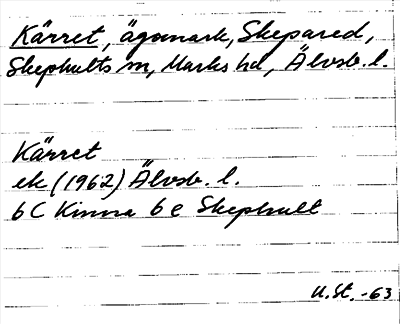 Kärret, ägomark, Skepared,
Skephults sn, Marks hd, Älvsb. l.
Kärret
ek (1962) Älvsb. l.
6 C Kinna 6 e Skephult
U.St. -63